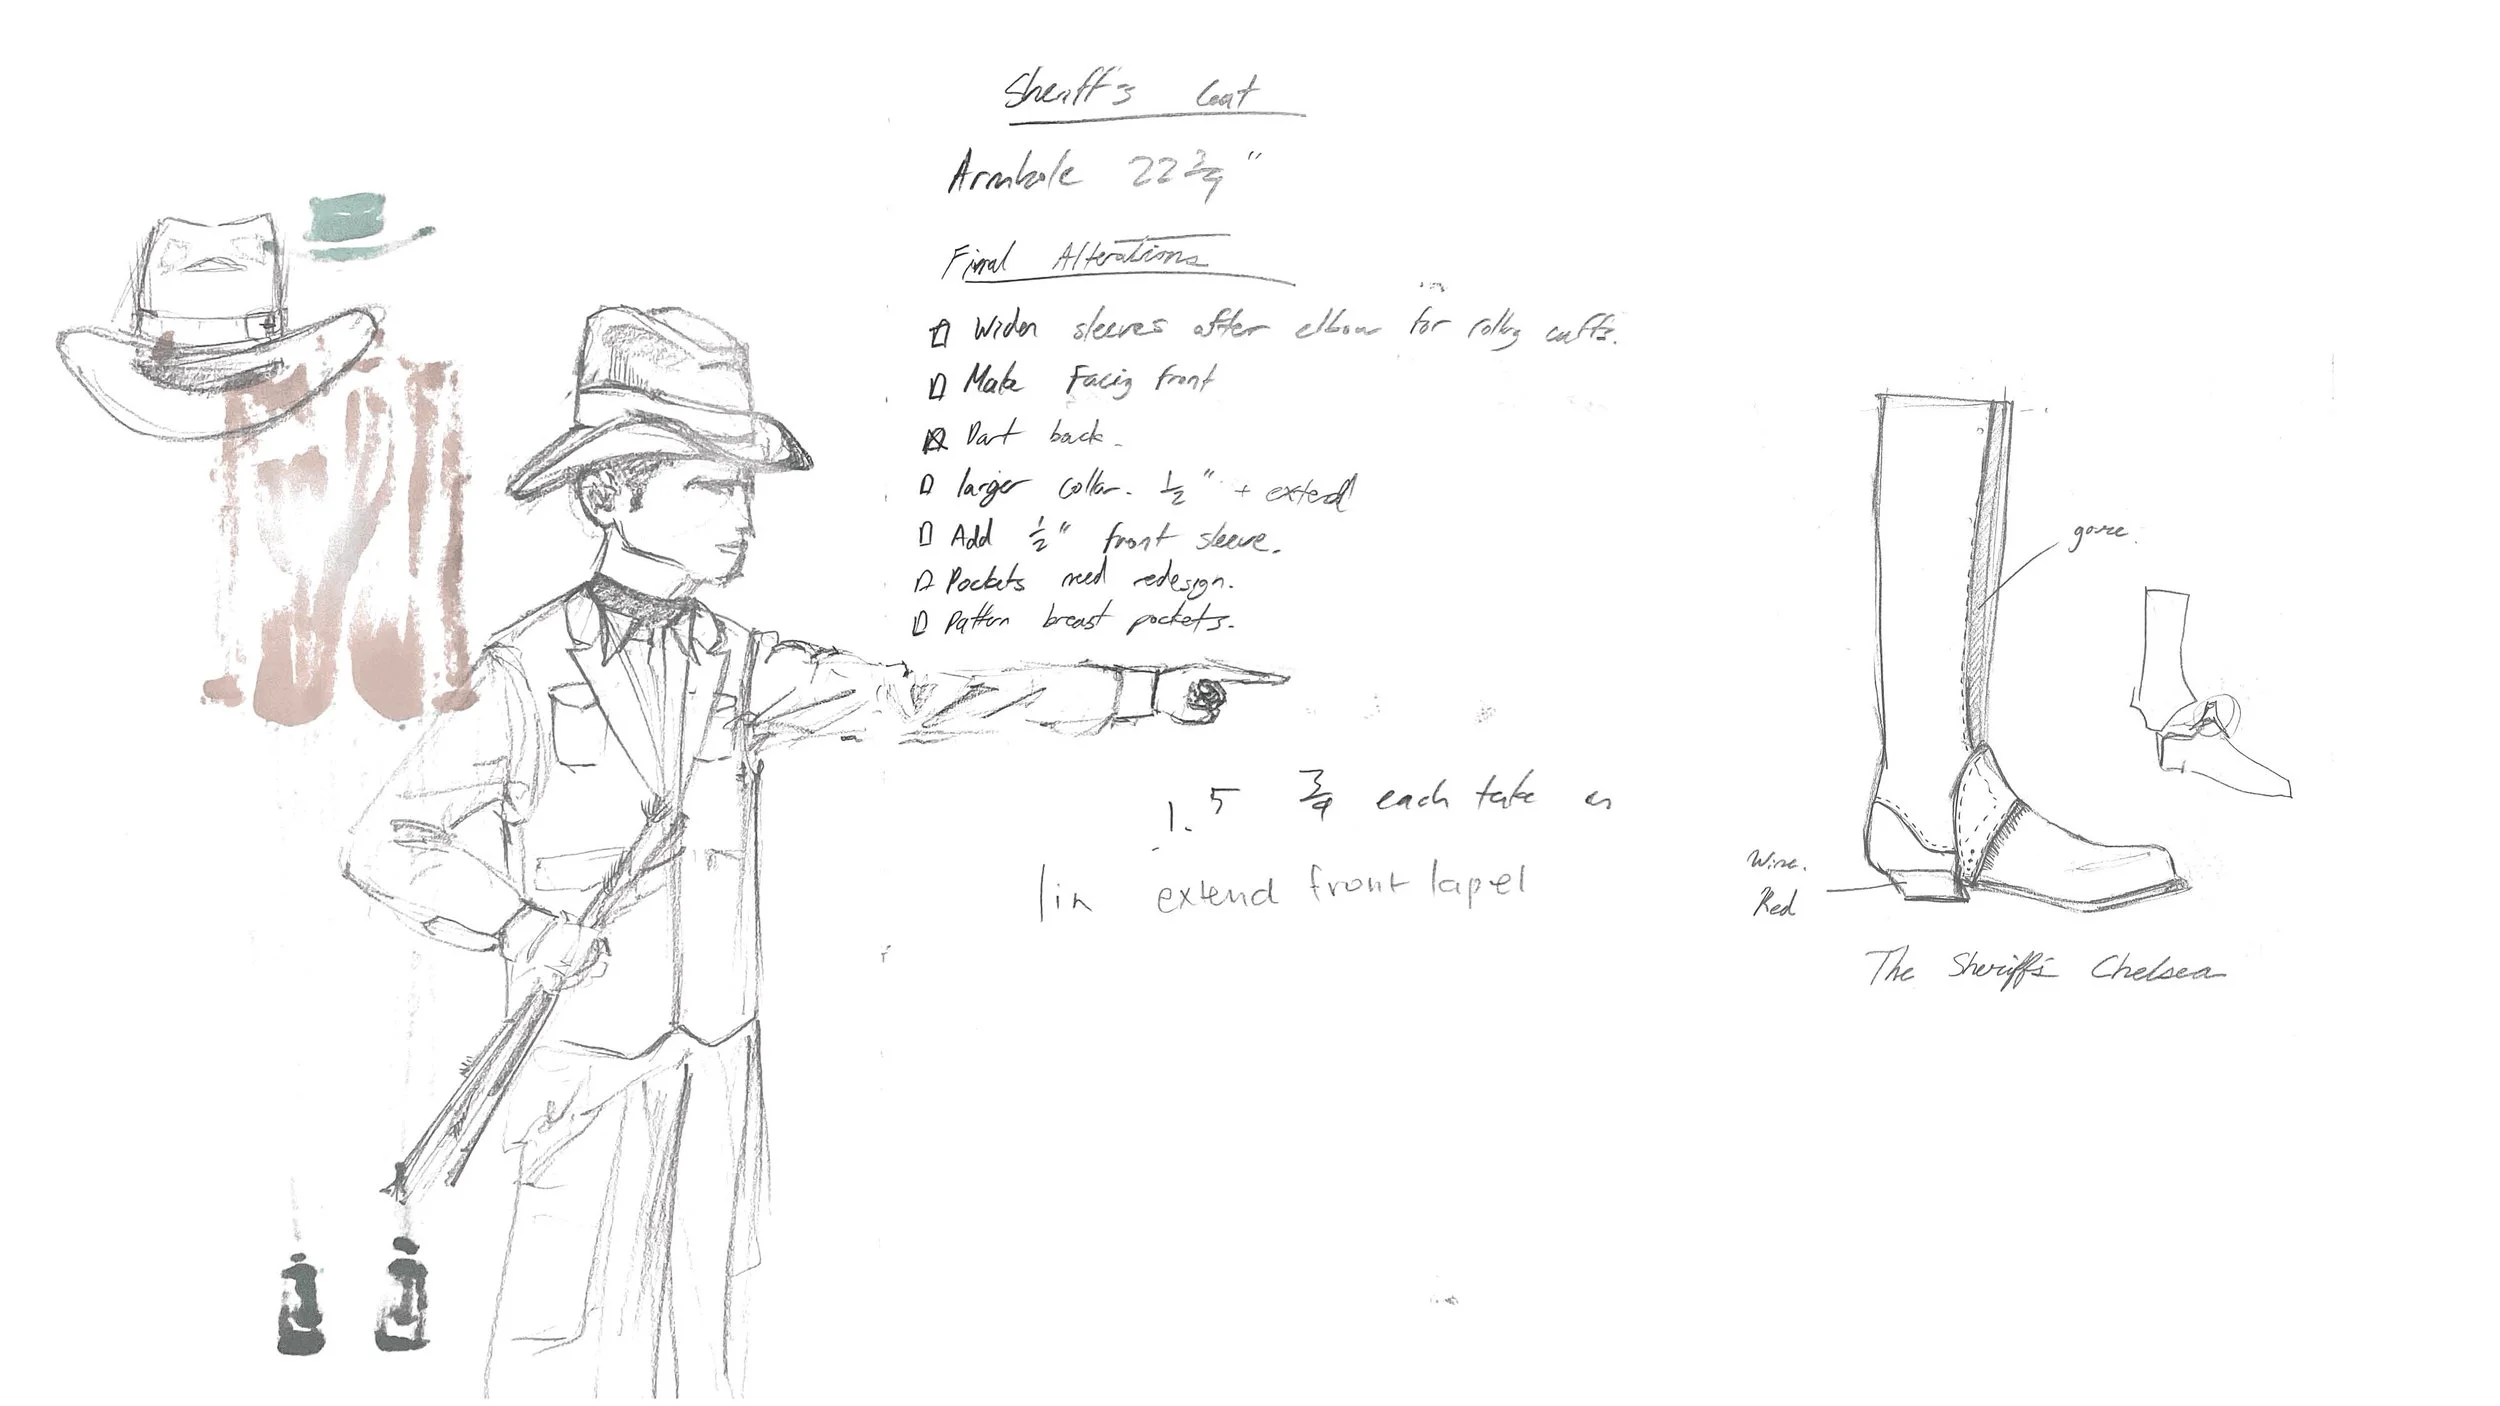 Sheriff's Coat
Armhole 22 3/4 "
Final Alterations
Widen sleeves after elbow for rolling cuffs.
Make Facing front
Dart back.
larger collar. 1/2 " + extend
Add 1/2 " front sleeve.
Pockets need redesign.
Pattern breast pockets.
1.5 3/4 each take
1in extend front lapel
gore.
Wine.
Red
The Sheriff's Chelsea